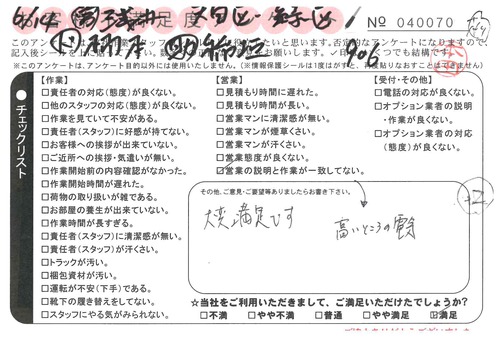 No 040070
※このアンケートは、アンケート目的以外には使用いたしません。(情報保護シールは1度はがすと、再度貼りなおすことはできません)
チェックリスト
【作業】
□責任者の対応(態度)が良くない。
□他のスタッフの対応(態度)が良くない。
□作業を見ていて不安がある。
□責任者(スタッフ)に好感が持てない。
□お客様への挨拶が出来ていない。
□ご近所への挨拶・気遣いが無い。
□作業開始前の内容確認がなかった。
□作業開始時間が遅れた。
□荷物の取り扱いが雑である。
□お部屋の養生が出来ていない。
□作業時間が長すぎる。
□責任者(スタッフ)に清潔感が無い。
□責任者(スタッフ)が汗くさい。
□トラックが汚い。
□梱包資材が汚い。
□運転が不安(下手)である。
□靴下の履き替えをしてない。
□スタッフにやる気がみられない。
【営業】
□見積もり時間に遅れた。
□見積もり時間が長い。
□営業マンに清潔感が無い。
□営業マンが煙草くさい。
□営業マンが汗くさい。
□営業態度が良くない。
□営業の説明と作業が一致してない。
【受付・その他】
□電話の対応が良くない。
□オプション業者の説明
・作業が良くない。
□オプション業者の対応
(態度)が良くない。
その他、ご意見・ご要望等ありましたらお書き下さい。
大変満足です
高いところの
☆当社をご利用いただきまして、ご満足いただけたでしょうか?
□不満 □やや不満 □普通 □やや満足 ☑満足